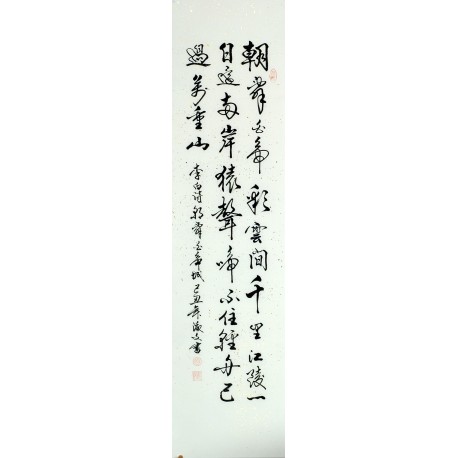 朝辭白帝彩雲間千里江陵一
日還兩岸猿聲啼不住輕舟已
過萬重山
李白诗朝辭白帝城己丑年海文書